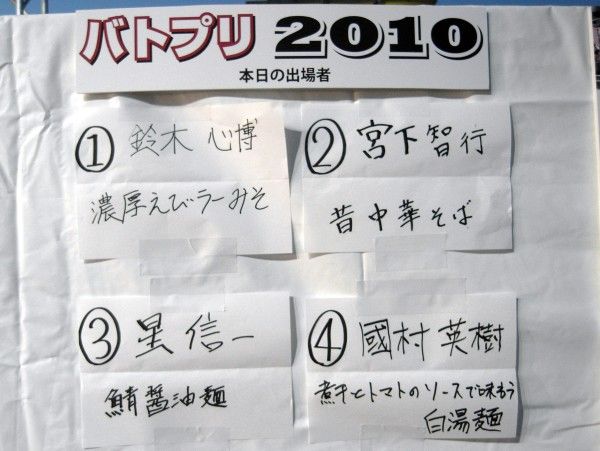 バトプリ 2010
本日の出場者
① 鈴木 心博
濃厚えびラーみそ
② 宮下智行
昔中華そば
③ 星信一
鯖醤油麺
④ 國村英樹
煮干とトマトのソースで味わう
白湯麺